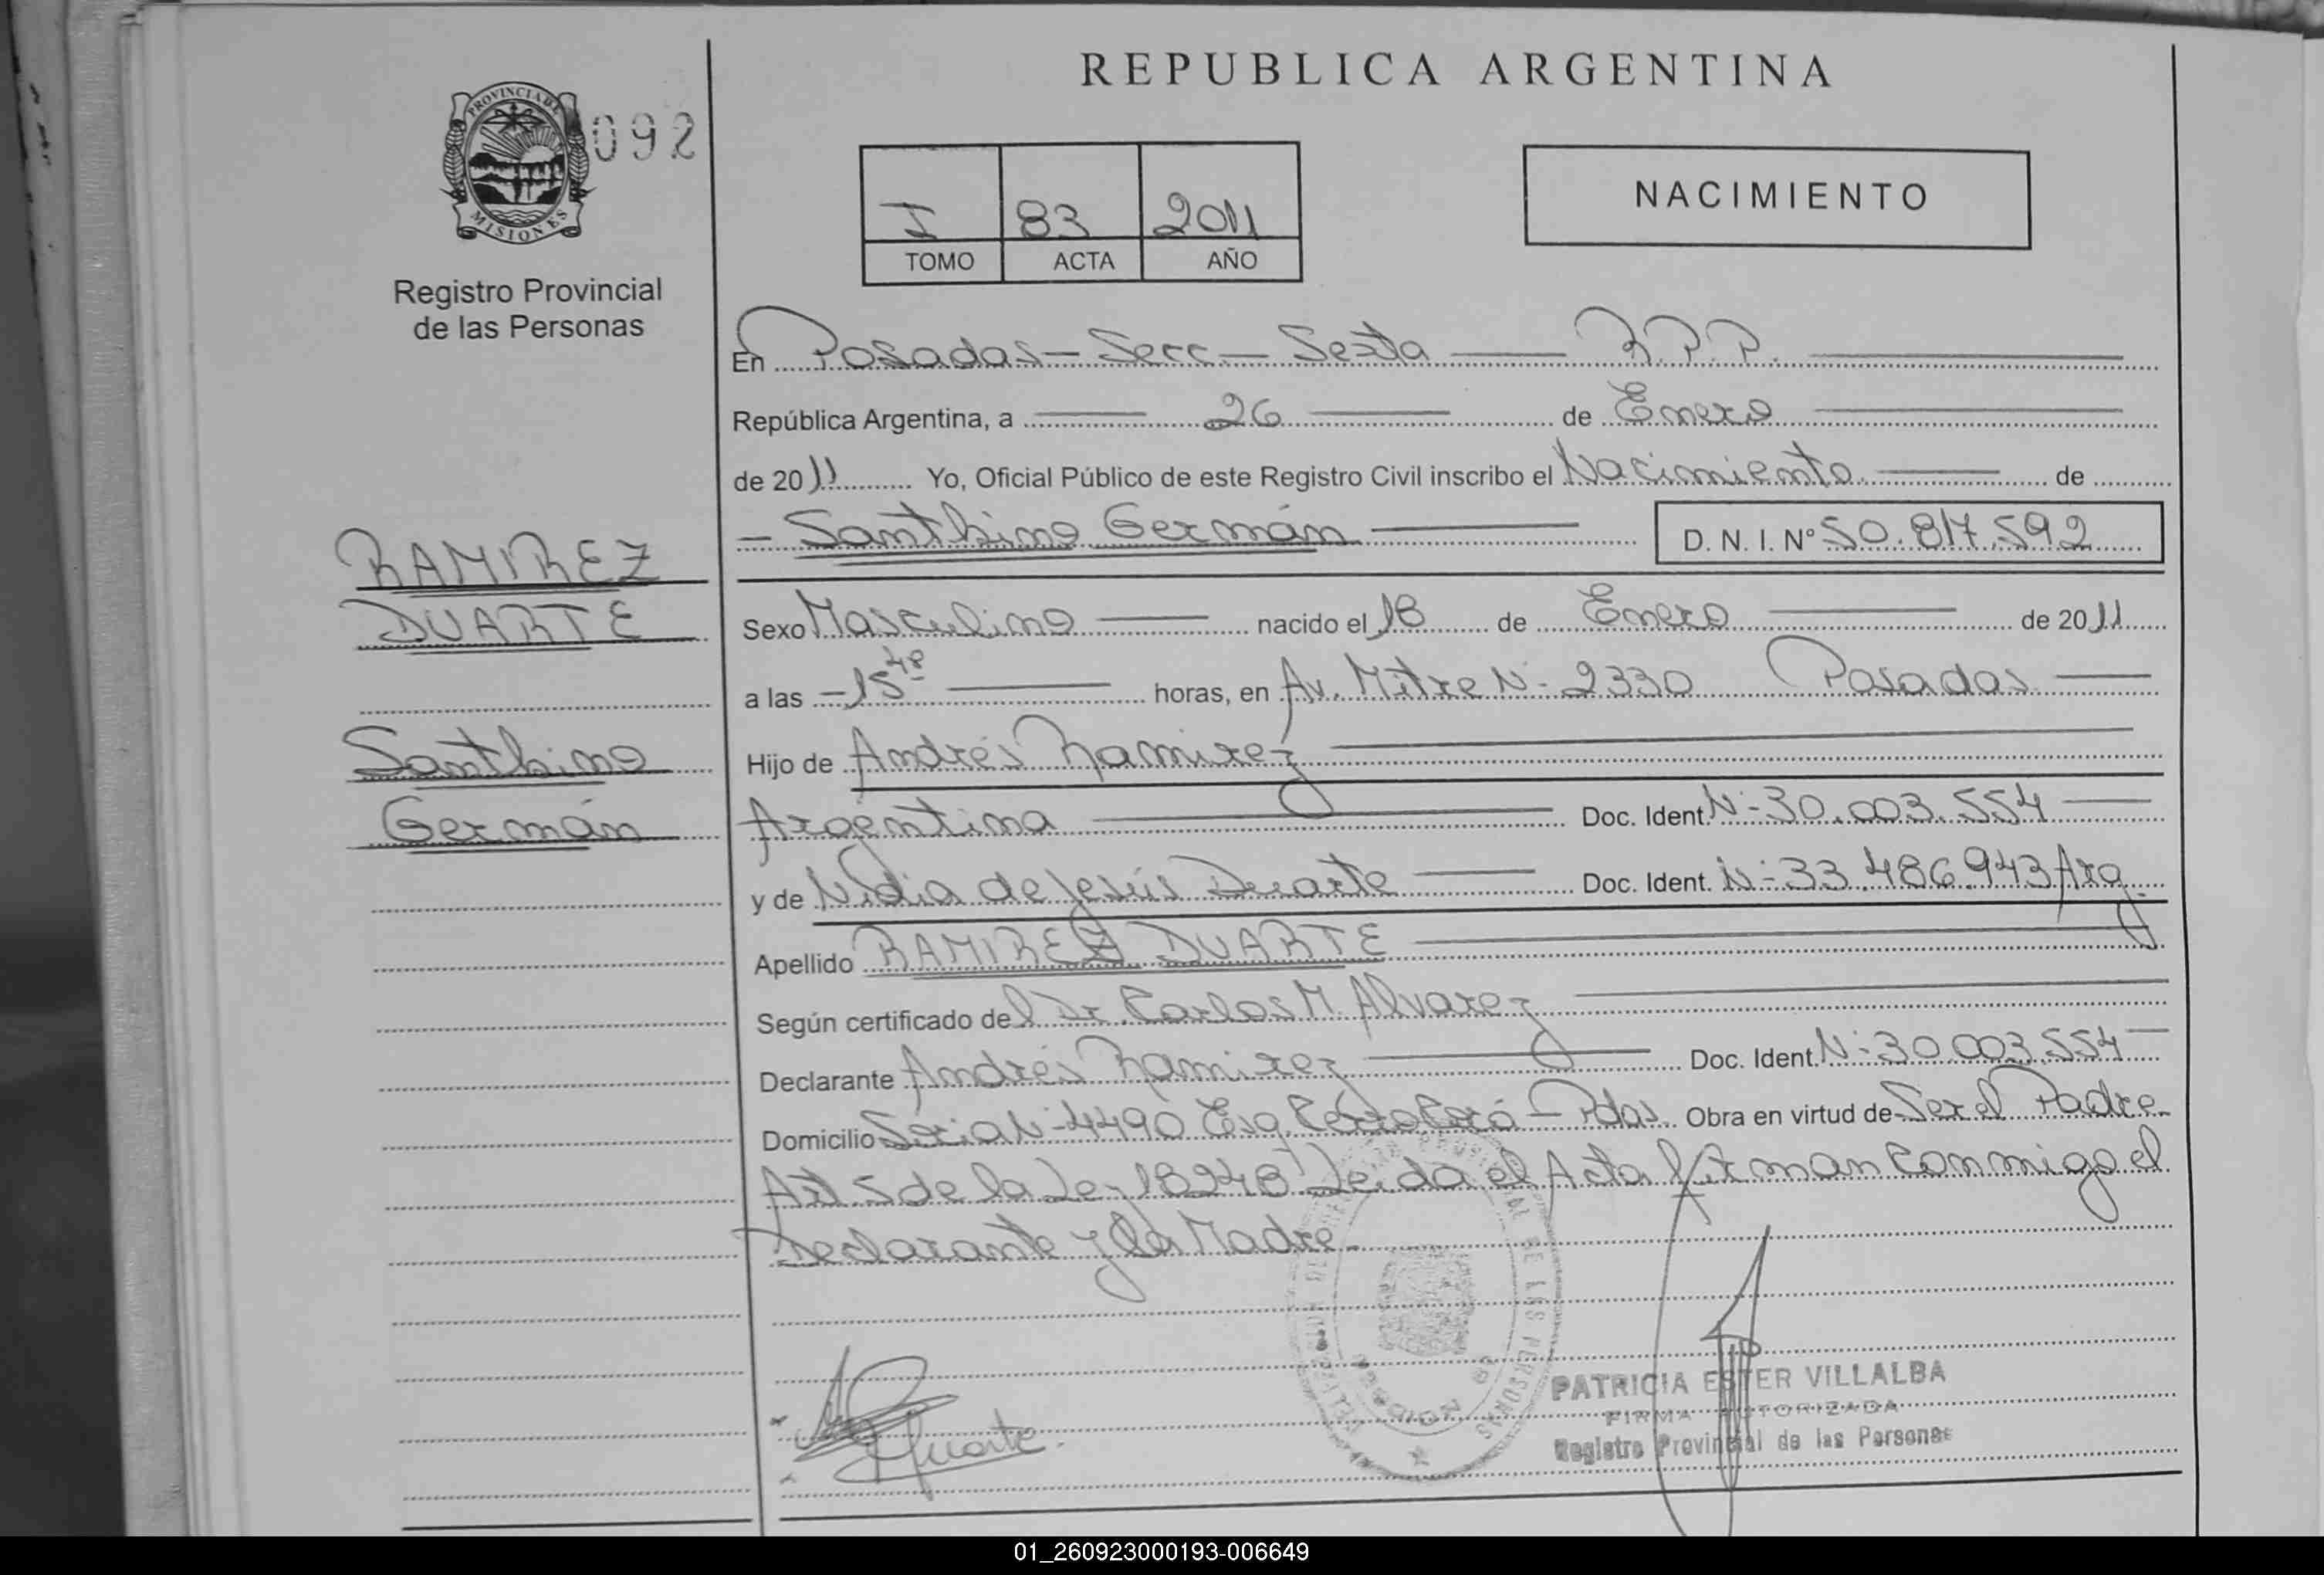 REPUBLICA ARGENTINA
PROVINCIA DE
MISIONES
092
Registro Provincial
de las Personas
I 83 2011
TOMO ACTA AÑO
NACIMIENTO
En Posadas – Secc. – Sexta — R.P.P. —
República Argentina, a — 26 — de Enero —
de 2011 Yo, Oficial Público de este Registro Civil inscribo el Nacimiento — de
– Santhino Germán — D. N. I. Nº 50.817.592
RAMIREZ
DUARTE
Santhino
Germán
Sexo Masculino — nacido el 18 de Enero — de 2011
a las – 15 48 — horas, en Av. Mitre Nº 2330 Posadas —
Hijo de Andrés Ramirez —
Argentina — Doc. Ident. Nº 30.003.554 —
y de Nidia de Jesús Duarte — Doc. Ident. Nº 33.486.943 Arg.
Apellido RAMIREZ DUARTE —
Según certificado del Dr. Carlos M. Alvarez —
Declarante Andrés Ramirez — Doc. Ident. Nº 30.003.554 —
Domicilio Nº 4490 Esq. Cerro Corá – Pdas. Obra en virtud de Ser el Padre
Art. 5 de la Ley 18248 Leida el Acta firman conmigo el
Declarante y la Madre.
Duarte
PATRICIA ESTER VILLALBA
FIRMA AUTORIZADA
Registro Provincial de las Personas
DE LAS PERSONAS
01_260923000193-006649